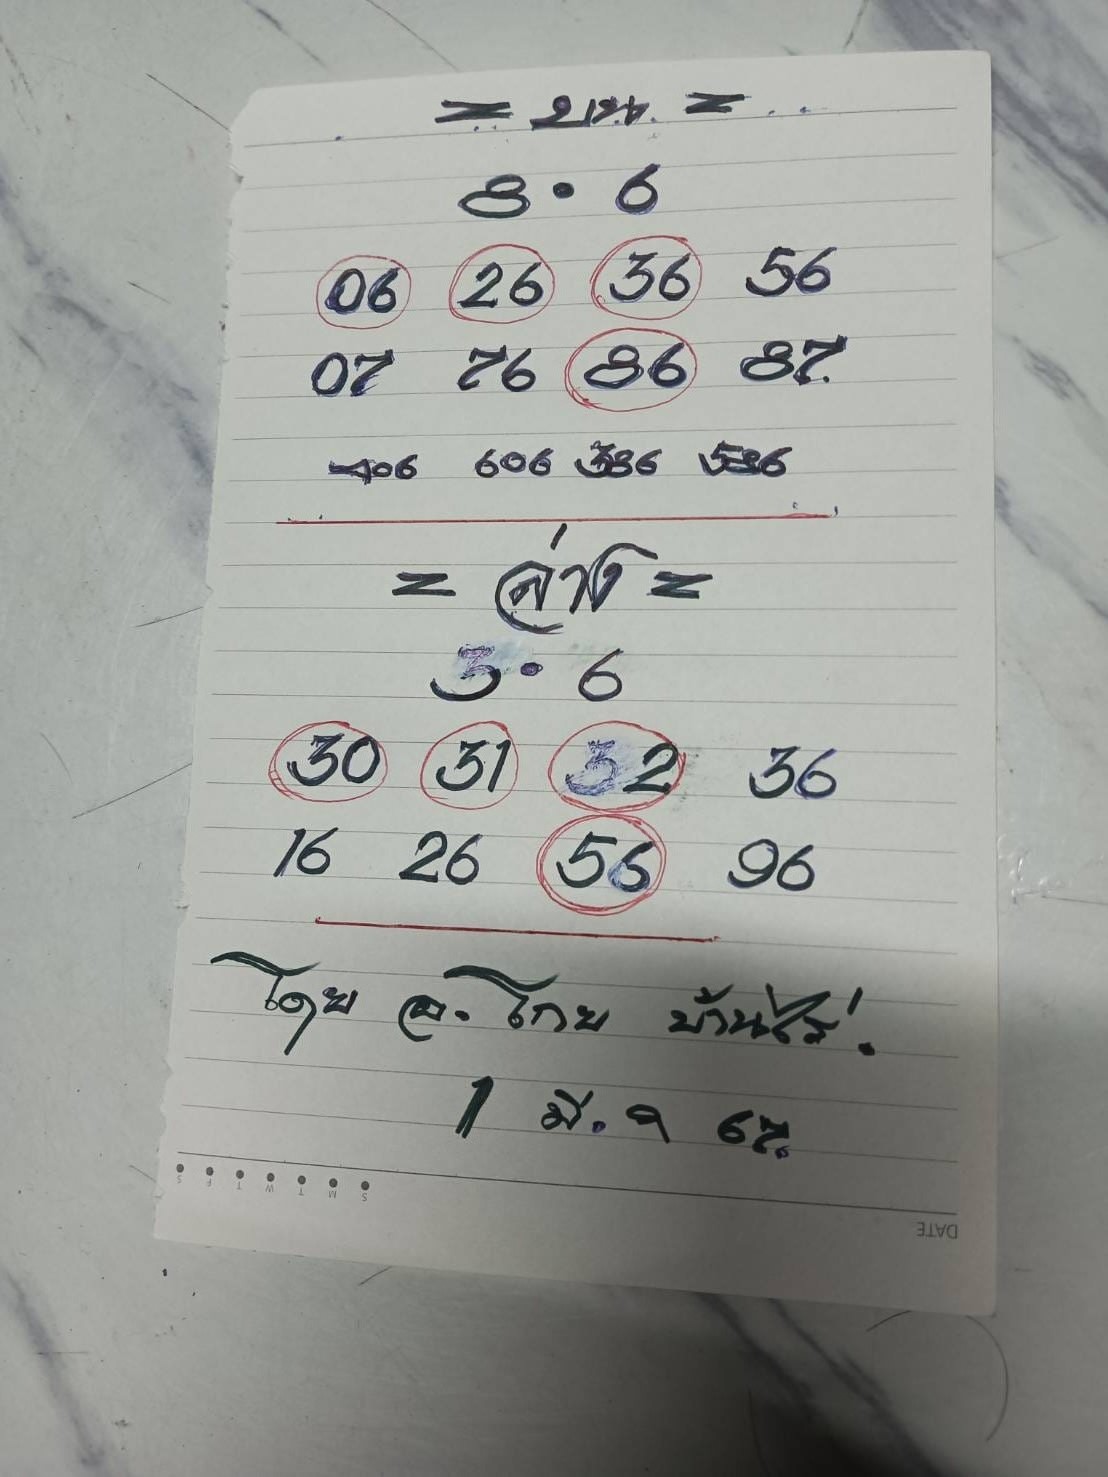 = บน =
8 • 6
06 26 36 56
07 76 86 87
406 606 386 586
= ล่าง =
3 • 6
30 31 32 36
16 26 56 96
โดย อ. โกย บ้านไร่.
1 มี. ค 67.
S M T W T F S
DATE